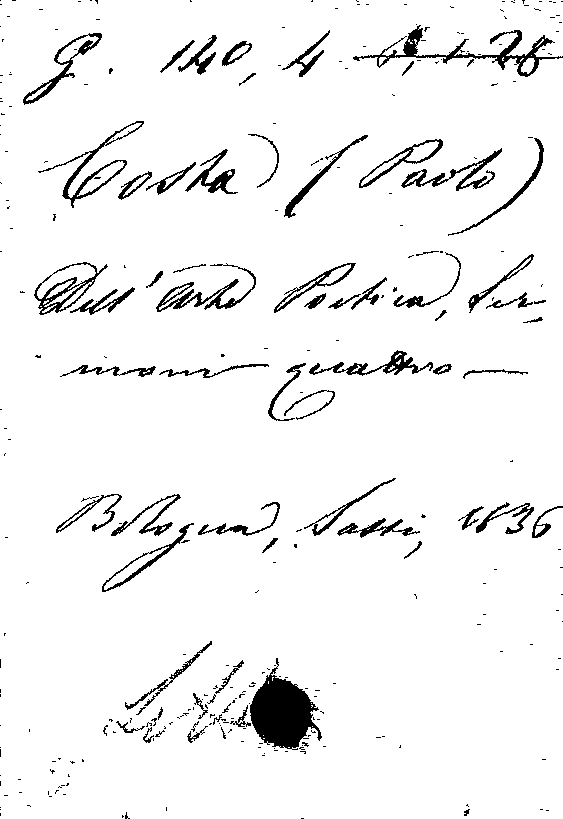 G. 140, 4
Costa (Paolo)
Dell'Arte Poetica, Ser-
moni quattro —
Bologna, Sassi, 1836